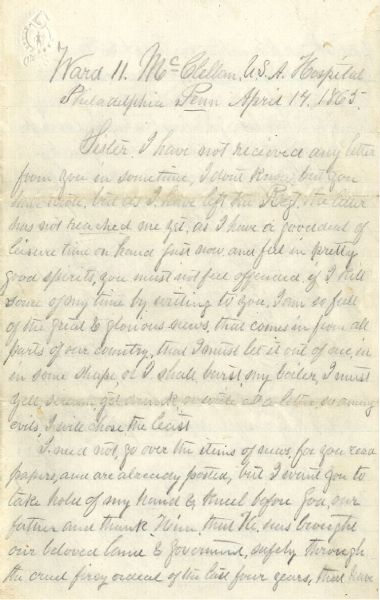 Ward 11. McClellan, U.S.A. Hospital
Philadelphia Penn April 14. 1865.
Sister, I have not recieved any letter
from you in sometime, I dont know, but you
have wrote, but as I have left the Reg. the letter
has not reached me yet, as I have a good deal of
leisure time on hand just now, and feel in pretty
good spirits, you must not feel offended if I kill
some of my time by writing to you, I am so full
of the great & glorious news, that comes in from all
parts of our country, that I must let it out of me, in
in some shape, or I shall burst my boiler, I must
yell, scream, get drunk or write a letter, so among
evils, I will chose the least
I need not, go over the items of news, for you read
papers, and are already posted, but I want you to
take hold of my hand & kneel before God, our
father and thank Him, that He, has brought
our beloved land & Government, safely through
the cruel firey ordeal of the last four years, that have